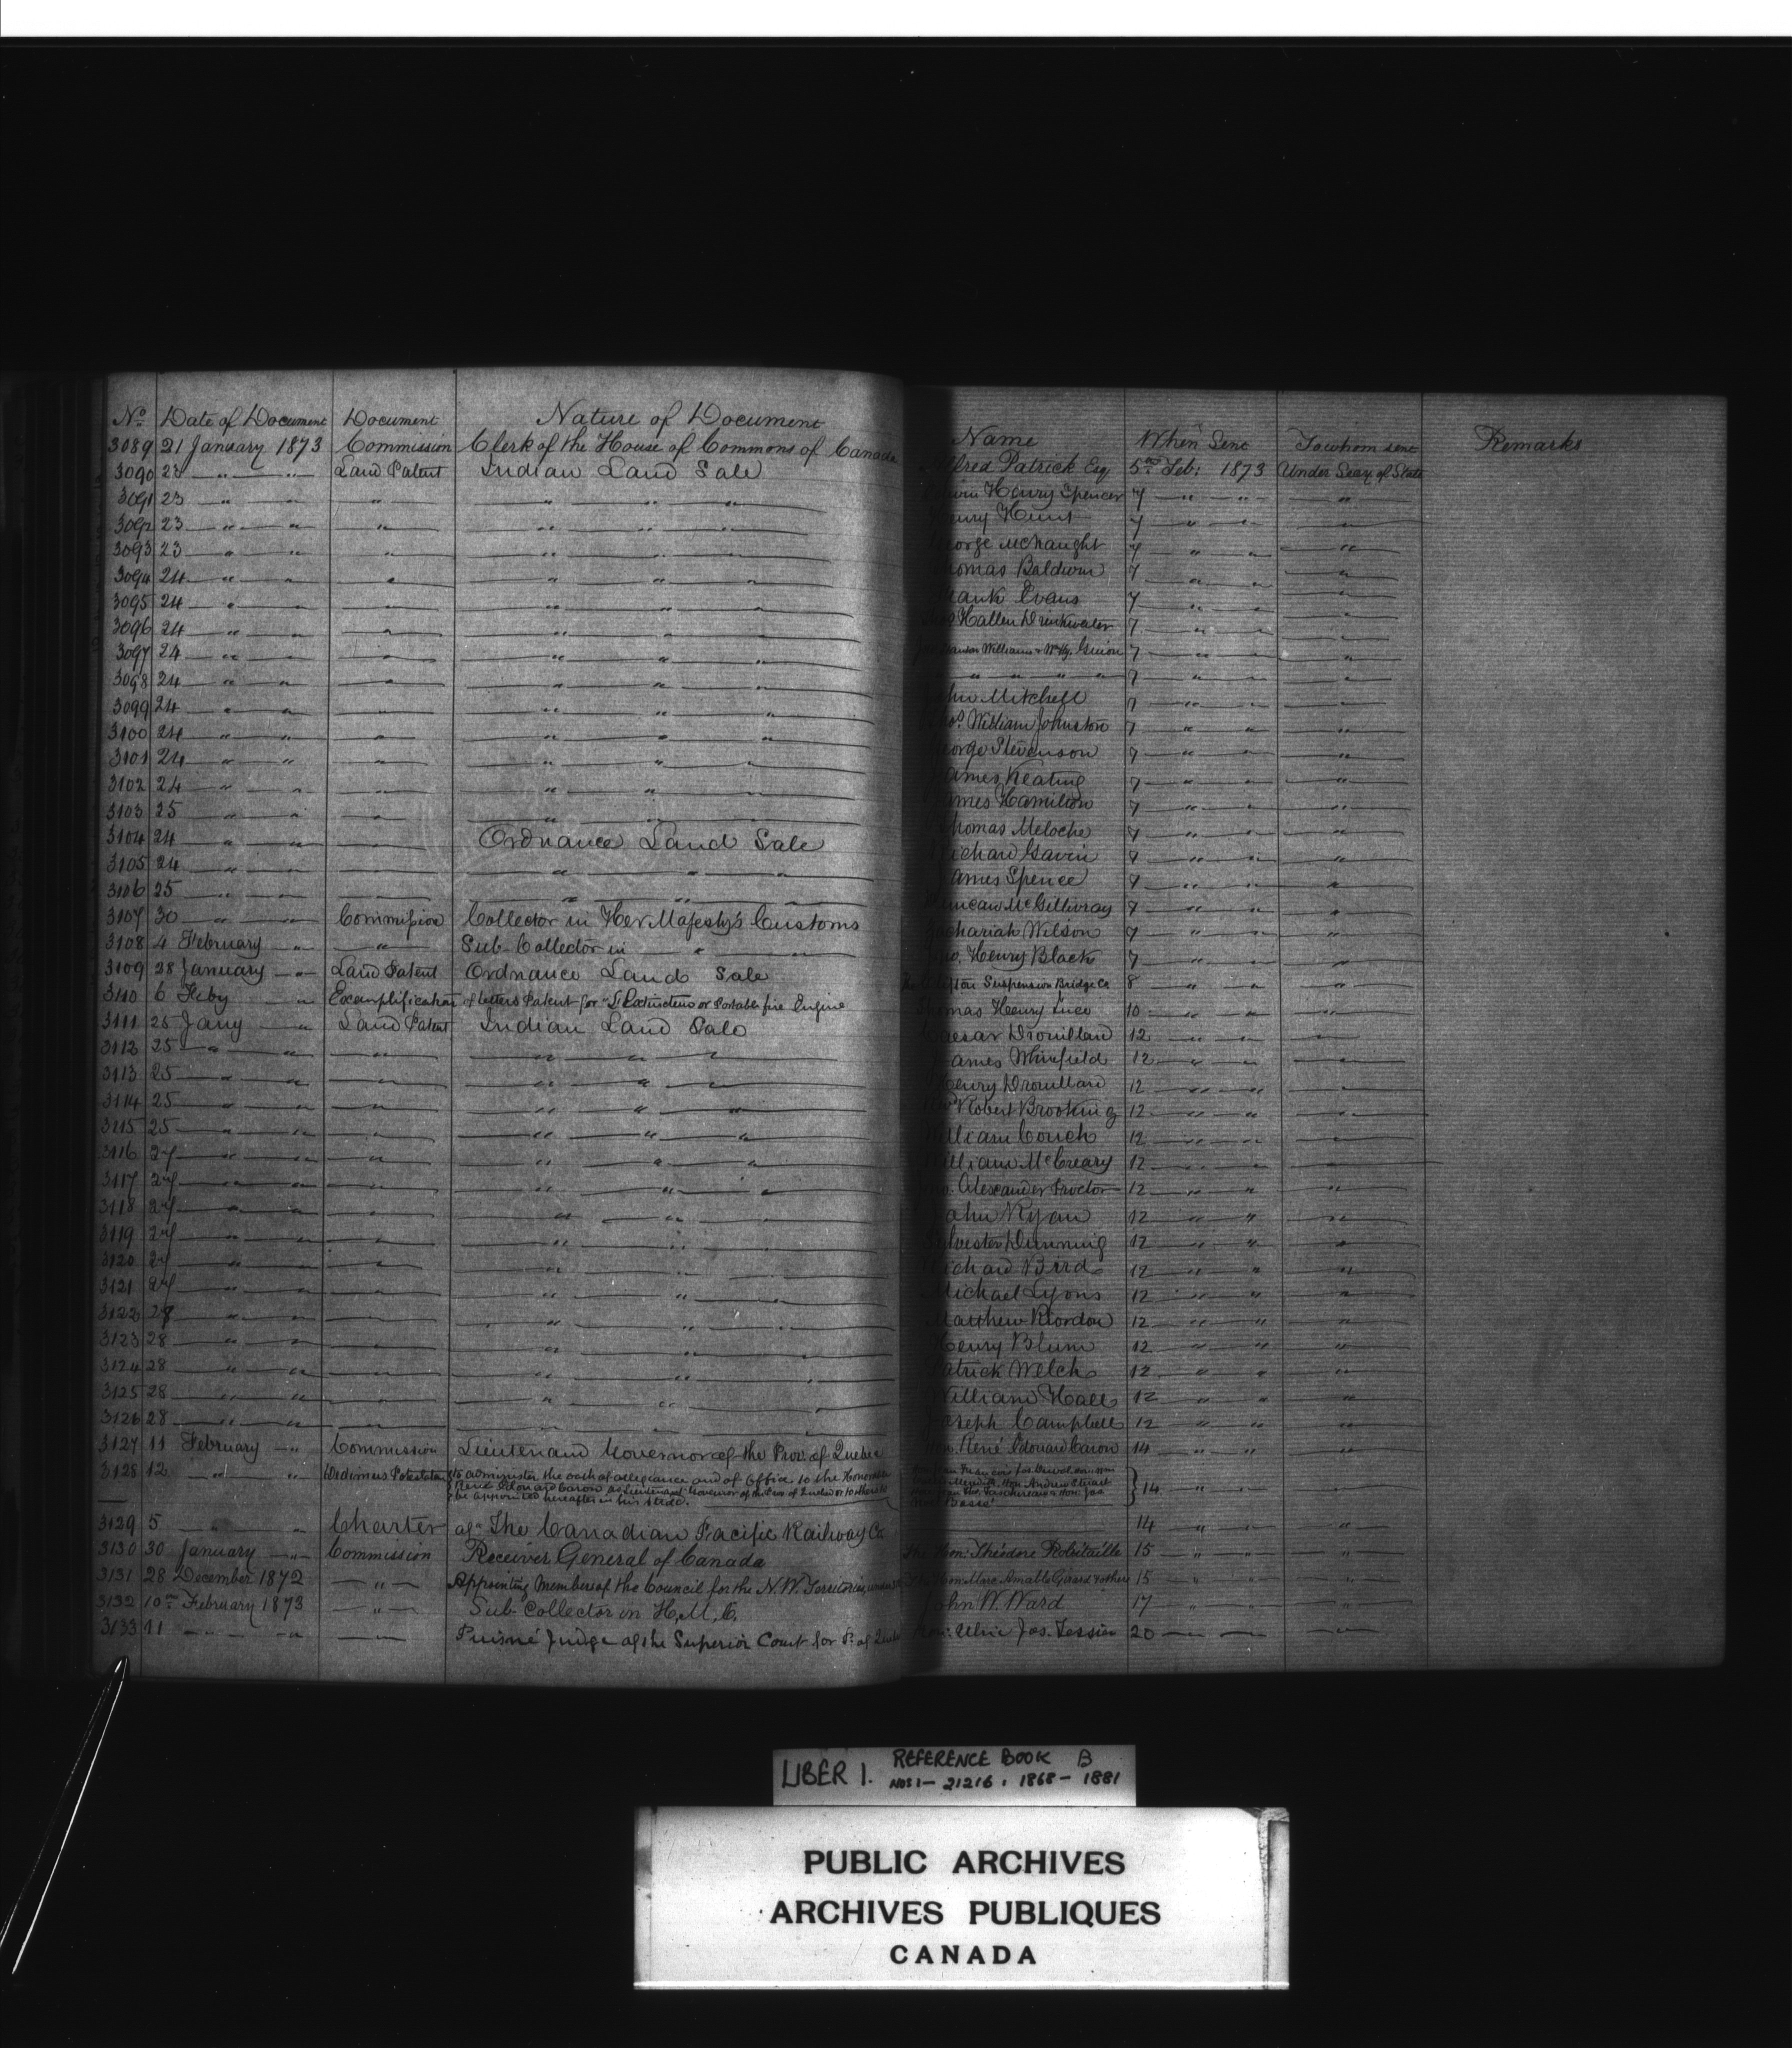 No. Date of Document Document Nature of Document Name When Sent To whom sent Remarks
3089 21 January 1873 Commission Clerk of the House of Commons of Canada Alfred Patrick Esq 5th Feb: 1873 Under Secy of State
3090 23 " " Land Patent Indian Land Sale Henry Spencer 7 " " "
3091 23 " " " " " " Henry Hunt 7 " " "
3092 23 " " " " " " George McNaught 7 " " "
3093 23 " " " " " " Thomas Baldwin 7 " " "
3094 24 " " " " " " Frank Evans 7 " " "
3095 24 " " " " " " Hallen Drinkwater 7 " " "
3096 24 " " " " " " Williams & Wm Hy. Guion 7 " " "
3097 24 " " " " " " " " " " 7 " " "
3098 24 " " " " " " John Mitchell 7 " " "
3099 24 " " " " " " William Johnston 7 " " "
3100 24 " " " " " " George Stevenson 7 " " "
3101 24 " " " " " " James Keating 7 " " "
3102 24 " " " " " " James Hamilton 7 " " "
3103 25 " " " " " " Thomas Meloche 7 " " "
3104 24 " " " Ordnance Land Sale Richard Gavin 7 " " "
3105 24 " " " " " " James Spence 7 " " "
3106 25 " " " " " " Duncan McGillivray 7 " " "
3107 30 " " Commission Collector in Her Majesty's Customs Zachariah Wilson 7 " " "
3108 4 February " " Sub-Collector in " " Henry Black 7 " " "
3109 28 January " Land Patent Ordnance Land Sale Clifton Suspension Bridge Co 8 " " "
3110 6 Feby " Exemplification of Letters Patent for or Portable fire Engine Thomas Henry Luce 10 " " "
3111 25 Jany " Land Patent Indian Land Sale Caesar Drouillard 12 " " "
3112 25 " " " " " " James Whinfield 12 " " "
3113 25 " " " " " " Henry Drouillard 12 " " "
3114 25 " " " " " " Robert Brooking 12 " " "
3115 25 " " " " " " William Couch 12 " " "
3116 27 " " " " " " William McCreary 12 " " "
3117 27 " " " " " " Alexander Proctor 12 " " "
3118 27 " " " " " " John Ryan 12 " " "
3119 27 " " " " " " Sylvester Dunning 12 " " "
3120 27 " " " " " " Richard Bird 12 " " "
3121 27 " " " " " " Michael Lyons 12 " " "
3122 28 " " " " " " Matthew Riordon 12 " " "
3123 28 " " " " " " Henry Blum 12 " " "
3124 28 " " " " " " Patrick Welch 12 " " "
3125 28 " " " " " " William Hall 12 " " "
3126 28 " " " " " " Joseph Campbell 12 " " "
3127 11 February " Commission Lieutenant Governor of the Prov. of Quebec Hon. René Edouard Caron 14 " " "
3128 12 " " Dedimus Potestatem to administer the oath of allegiance and of Office to the Honorable
René Edouard Caron as Lieutenant Governor of the Prov of Quebec or to others to
be appointed hereafter in his stead. Hon. Andrew Stuart 14 " " "
3129 5 " " Charter of "The Canadian Pacific Railway Co 14 " " "
3130 30 January " Commission Receiver General of Canada The Hon: Théodore Robitaille 15 " " "
3131 28 December 1872 " Appointing Members of the Council for the N.W. Territories, The Hon Marc Amable Girard & others 15 " " "
3132 10th February 1873 " Sub-Collector in H.M.C. John W. Ward 17 " " "
3133 11 " " Puisné Judge of the Superior Court for P. of Quebec Hon: Ulric Jos. Tessier 20
LIBER 1. REFERENCE BOOK B
NOS 1 - 21216 : 1868 - 1881
PUBLIC ARCHIVES
ARCHIVES PUBLIQUES
CANADA